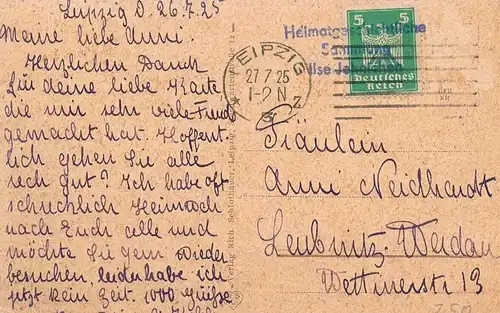 Leipzig d. 26.7.25
Meine liebe Anni.
Herzlichen Dank
für deine liebe Karte
die mir sehr viele Freud
gemacht hat. Hoffent-
lich gehen Sie alle
rech gut? Ich habe oft
schrecklich Heimweh
nach Euch alle und
möchte Sie gern wieder
besuchen, leider habe ich
jetzt kein Zeit. 1000 Grüße
Verlag Rich. Schlothauer, Leipzig
LEIPZIG
27.7.25
1-2 N
Z
Heimatgeschichtliche
Sammlung
5 5
Deutsches
Reich
Fräulein
Anni Neidhardt
Leubnitz-Werdau
Wettinerstr 13